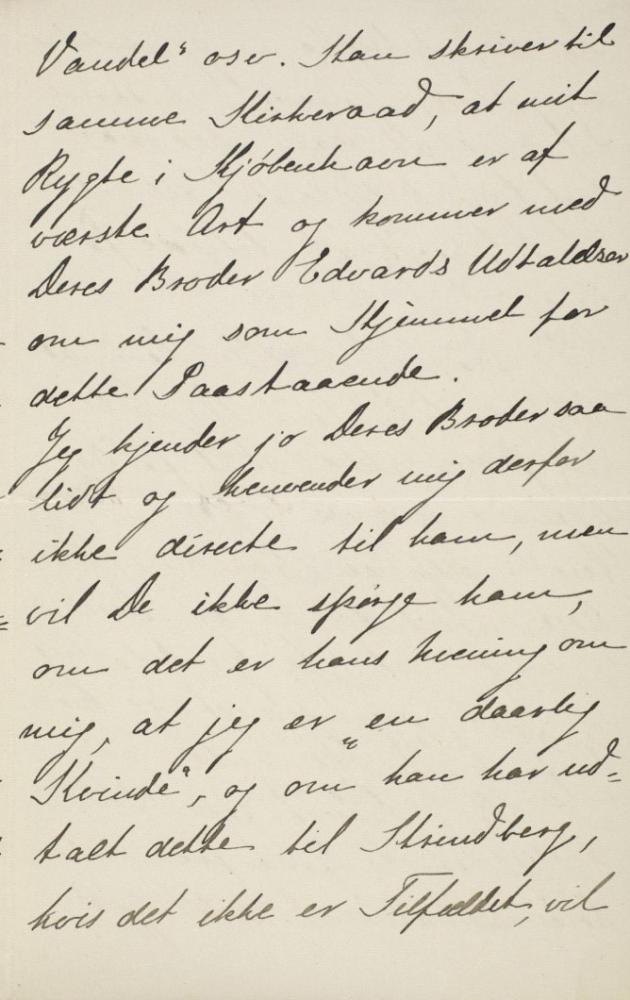 Vandel" osv. Han skriver til
samme Kirkeraad, at mit
Rygte i Kjøbenhavn er af
værste Art og kommer med
Deres Broder Edvards Udtalelser
om mig som Hjemmel for
dette Paastaaende.
Jeg kjender jo Deres Broder saa
lidt og henvender mig derfor
ikke directe til ham, men
vil De ikke spørge ham,
om det er hans Mening om
mig, at jeg er „en daarlig
Kvinde", og om han har ud=
talt dette til Strindberg,
hvis det ikke er Tilfældet, vil